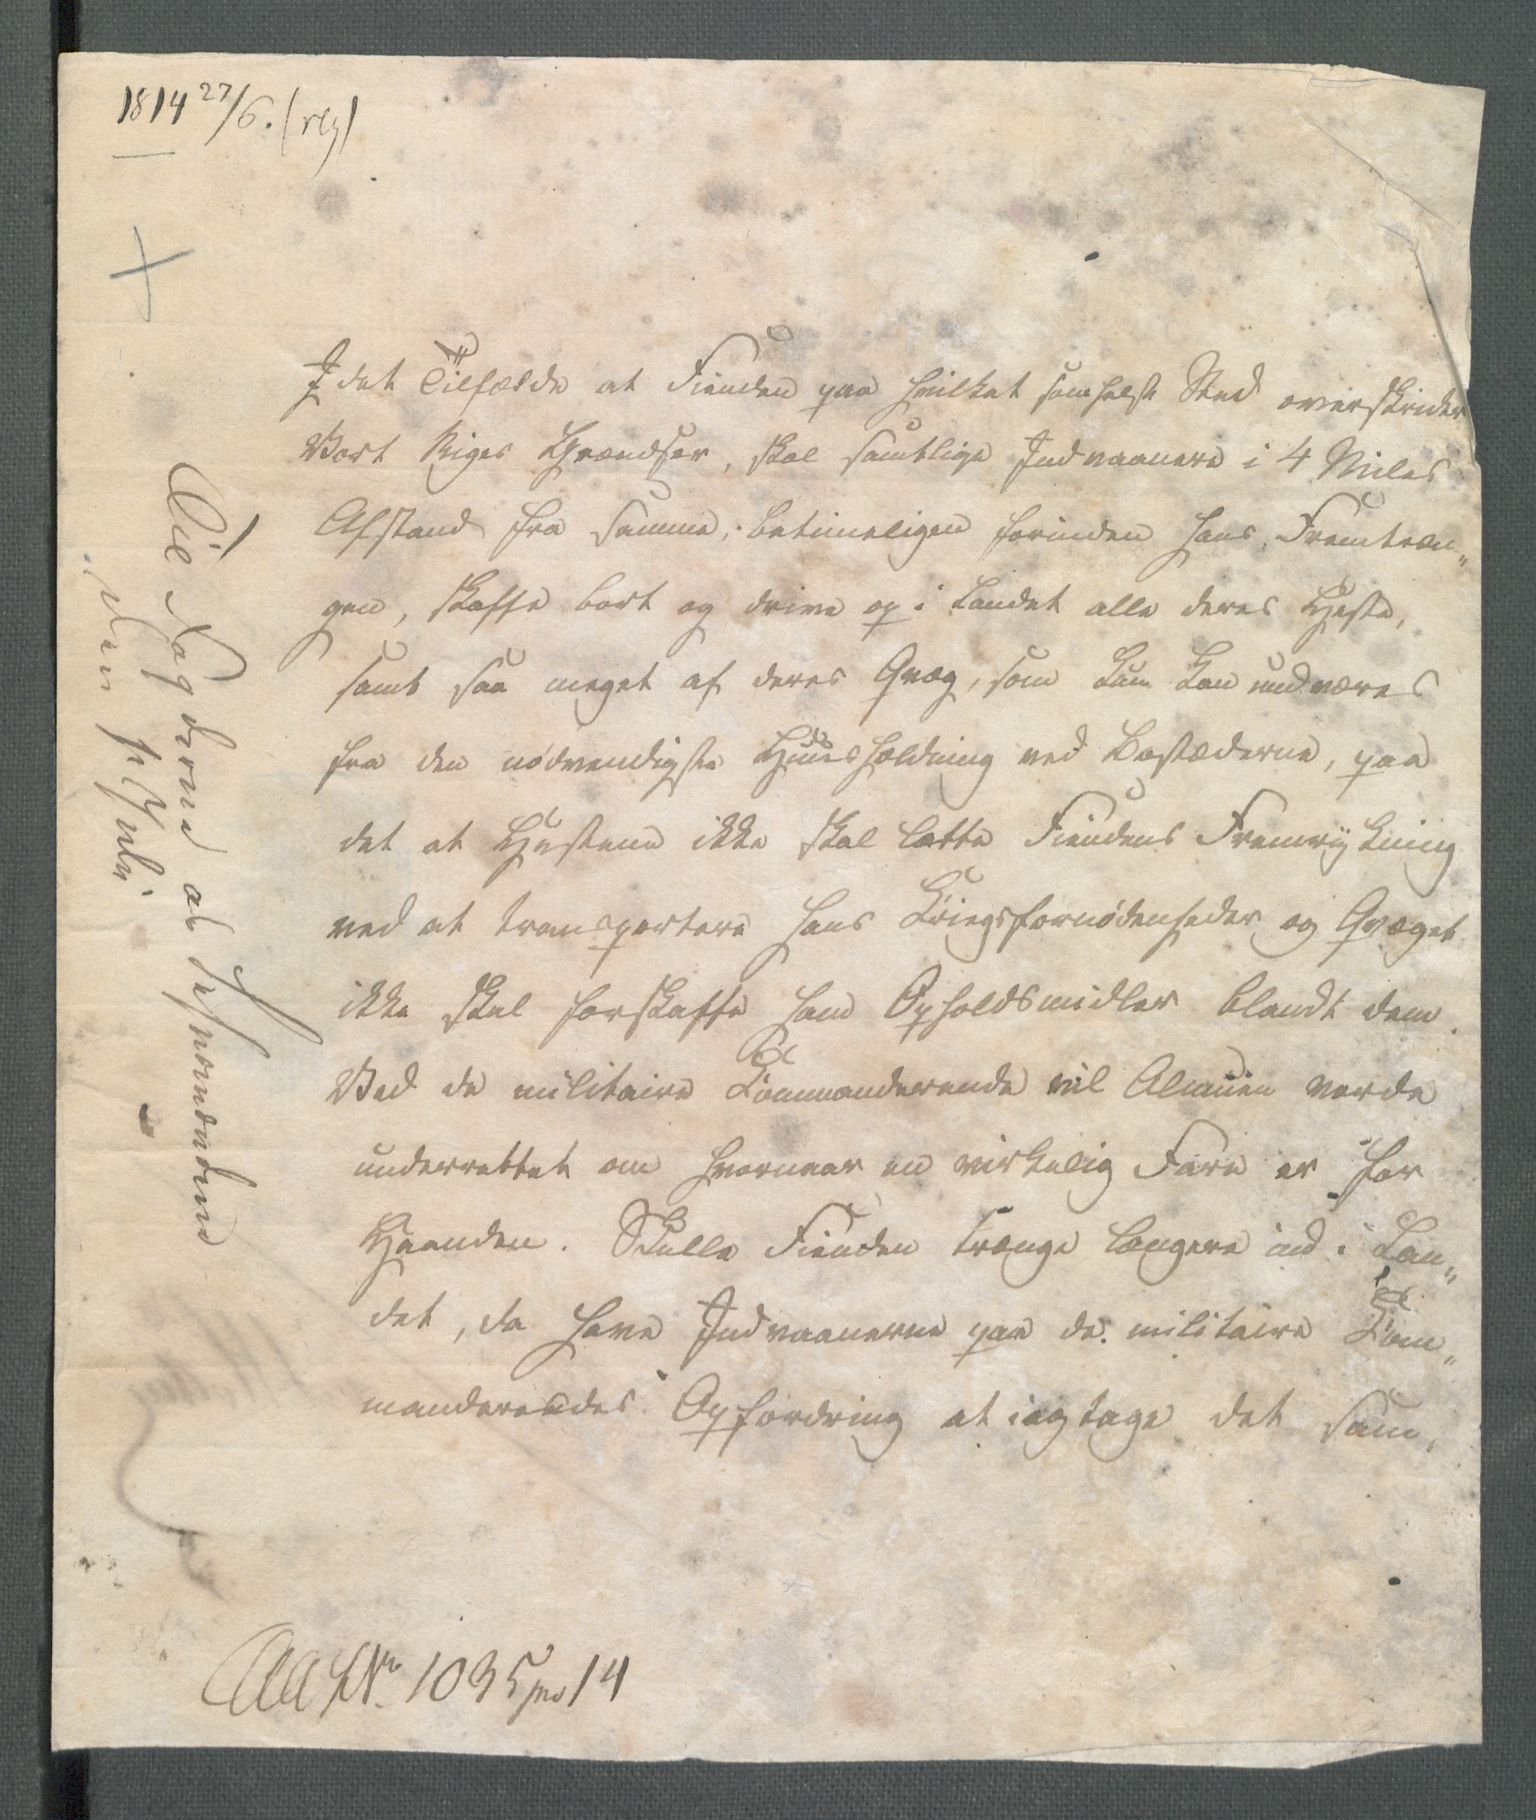 1814 27/6. (reg)
I det Tilfælde at Fienden paa hvilket somhelst Sted overskrider
Vort Riges Grændser, skal samtlige Indvaanere i 4 Miles
Afstand fra samme, betimeligen forinden hans Fremtræn„
gen, skaffe bort og drive op i Landet alle deres Heste,
samt saa meget af deres Qvæg, som kun kan undværes
fra den nødvendigste Huusholdning ved Bostæderne, paa
det at Hestene ikke skal lette Fiendens Fremrykning
ved at transportere hans Krigsfornødenheder og Qvæget
ikke skal forskaffe ham Opholdsmidler blandt dem.
Ved de militaire Commanderende vil Almuen vorde
underrettet om hvornaar en virkelig Fare er for
Haanden. Skulle Fienden trænge længere ind i Lan„
det, da have Indvaanerne paa de militaire Com„
manderendes Opfordring at iagtage det sam„
Til Fogderne
Den Juli
No 1035 pro 14